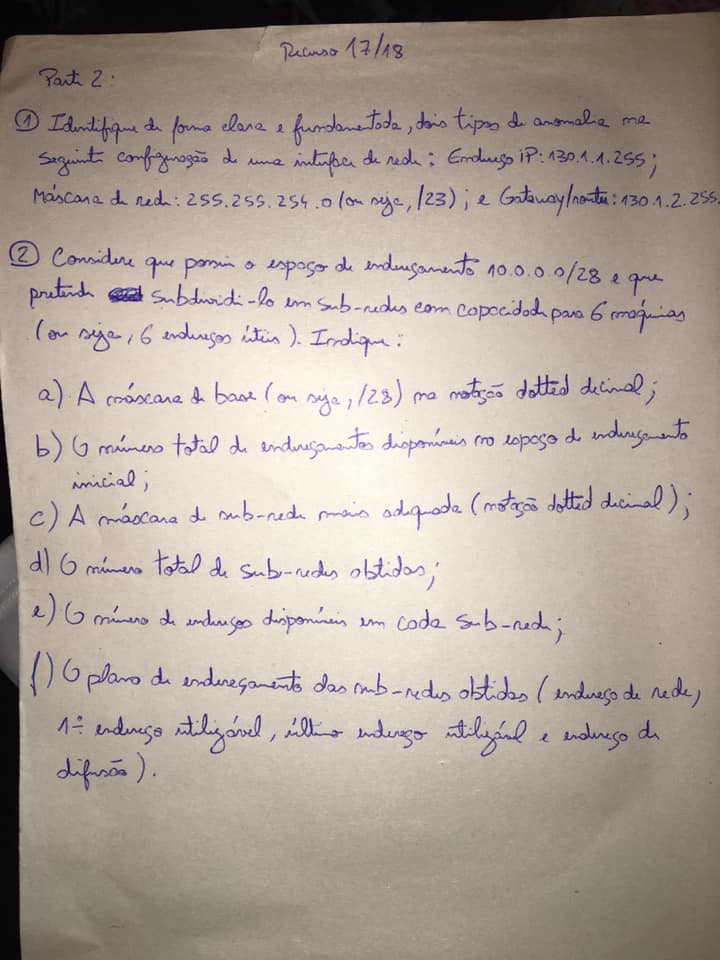 Recurso 17/18
Parte 2:
① Identifique de forma clara e fundamentada, dois tipos de anomalia na
seguinte configuração de uma interface de rede: Endereço iP: 130.1.1.255;
Máscara de rede: 255.255.254.0 (ou seja, /23); e Gateway/router: 130.1.2.255.
② Considere que possui o espaço de endereçamento 10.0.0.0/28 e que
pretende subdividi-lo em sub-redes com capacidade para 6 máquinas
(ou seja, 6 endereços úteis). Indique:
a) A máscara de base (ou seja, /28) na notação dotted decimal;
b) O número total de endereçamentos disponíveis no espaço de endereçamento
inicial;
c) A máscara de sub-rede mais adequada (notação dotted decimal);
d) O número total de sub-redes obtidas;
e) O número de endereços disponíveis em cada sub-rede;
f) O plano de endereçamento das sub-redes obtidas (endereço de rede,
1º endereço utilizável, último endereço utilizável e endereço de
difusão).